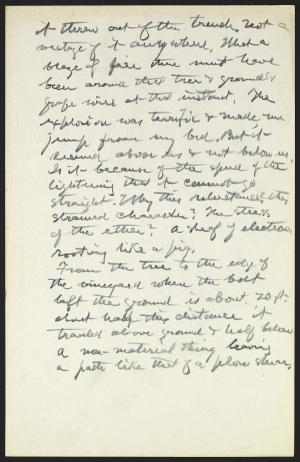 it threw out of the trench. Not a
vestige of it anywhere. What a
blaze of fire there must have
been around that tree & ground &
grape wire at that instant. The
explosion was terrific & made me
jump from my bed. But it
seemed above us & not below us.
Is it because of the speed of the
lightning that it cannot go
straight. Why this reluctance, this
strained character? The stress
of the ether? A of electrons
rooting like a pig.
From the tree to the edge of
the vineyard where the bolt
left the ground is about 20 ft.
about half this distance it
traveled above ground & half below
a non-material thing leaving
a path like that of a plow